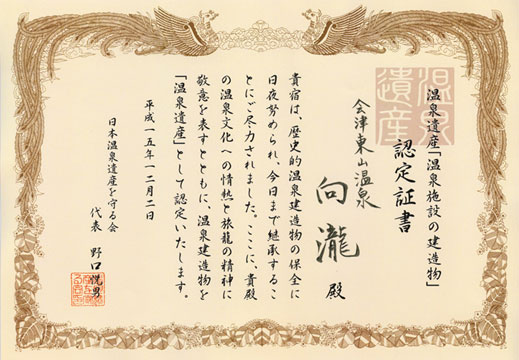 温泉遺産「温泉施設の建造物」
認定証書
温泉遺産
会津東山温泉
向瀧 殿
貴宿は、歴史的温泉建造物の保全に
日夜努められ、今日まで継承するこ
とにご尽力されました。ここに、貴殿
の温泉文化への情熱と旅籠の精神に
敬意を表すとともに、温泉建造物を
「温泉遺産」として認定いたします。
平成一五年一二月二日
日本温泉遺産を守る会
代表 野口悦男